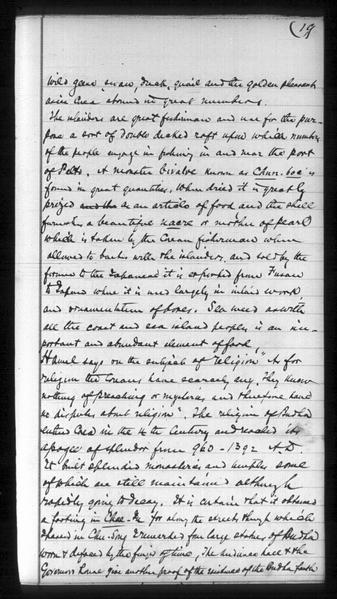 19
Wild geese, swan, duck, quail and the golden pheasant
as in Corea abound in great numbers.
The islanders are great fishermen and use for the pur-
pose a sort of double decked raft upon which numbers
of the people engage in fishing in and near the port
of . A monster bivalve known as is
found in great quantities. When dried it is greatly
prized as an article of food and the shell
furnishes a beautiful nacre or mother of pearl
which is taken by the Corean fisherman when
allowed to barter with the islanders, and sold by the
former to the Japanese it is exported from Fusan
to Japan where it is used largely in inlaid work
and ornamentation of boxes. Sea weed as with
all the coast and sea island peoples is an im-
portant and abundant element of food.
Hamel says on the subject of "religion" "As for
religion the Coreans have scarcely any. They know
nothing of preaching or mysteries and therefore have
no disputes about religion". The religion of Budha
entered Corea in the 4th Century and reached its
apogee of splendor from 960 - 1392 A.D.
It built splendid monasteries and temples some
of which are still maintained although
rapidly going to decay. It is certain that it obtained
a footing in for along the streets through which
I passed in I remarked four large statues of Budha
worn & defaced by the finger of time, The audience hall & the
Governors house give another proof of the existence of the Budha faith